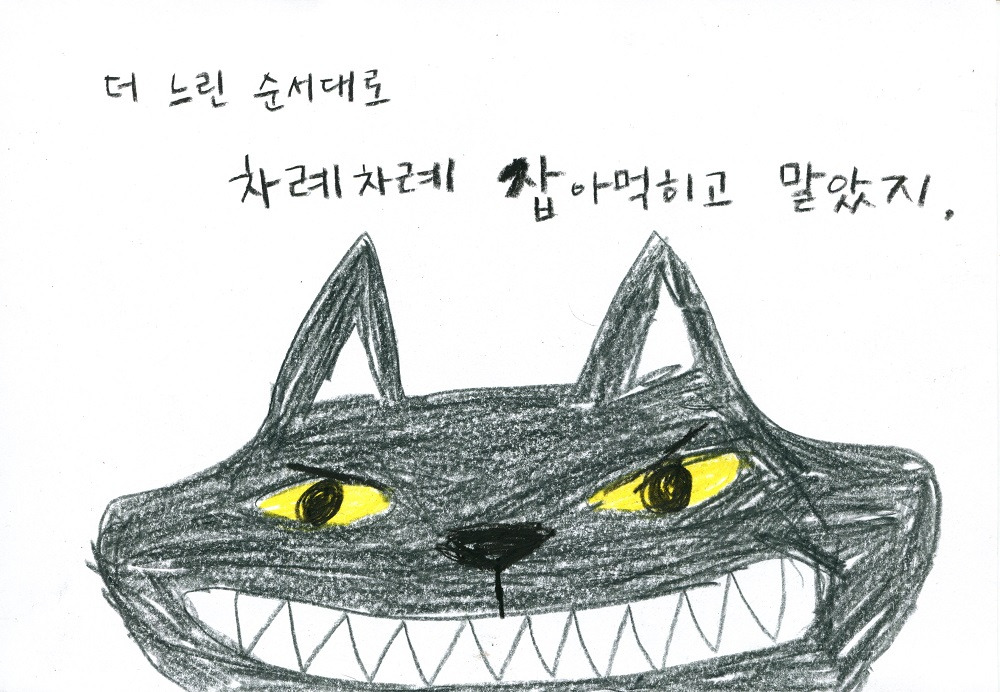 더 느린 순서대로
차례차례 잡아먹히고 말았지.